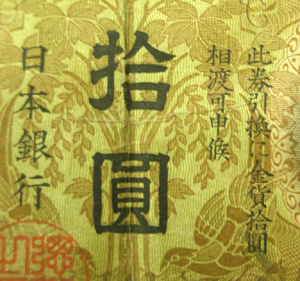 此券引換に金貨拾圓
相渡可申候
拾圓
日本銀行